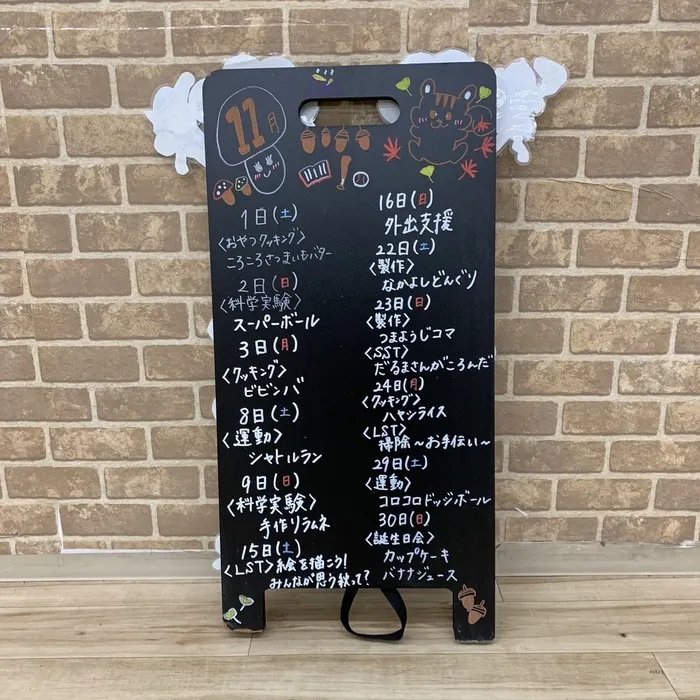 11月
1日(土)
〈おやつクッキング〉
ころころさつまいもバター
2日(日)
〈科学実験〉
スーパーボール
3日(月)
〈クッキング〉
ビビンバ
8日(土)
〈運動〉
シャトルラン
9日(日)
〈科学実験〉
手作りラムネ
15日(土)
〈LST〉絵を描こう!
みんなが思う秋って?
16日(日)
外出支援
22日(土)
〈製作〉
なかよしどんぐり
23日(日)
〈製作〉
つまようじコマ
〈SST〉
だるまさんがころんだ
24日(月)
〈クッキング〉
ハヤシライス
〈LST〉
掃除~お手伝い~
29日(土)
〈運動〉
コロコロドッジボール
30日(日)
〈誕生日会〉
カップケーキ
バナナジュース